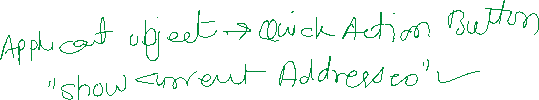 Applicant object → Quick Action Button
"show current Addresses" ✓